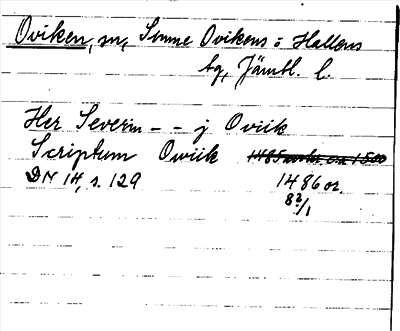 Oviken, sn, Sunne Ovikens o Hallens
tg, Jämtl. l.
Her Severin - - j Oviik
Scriptum Owiik 1485 ca 1500
DN 14, s. 129 1486 or.
8 2/1